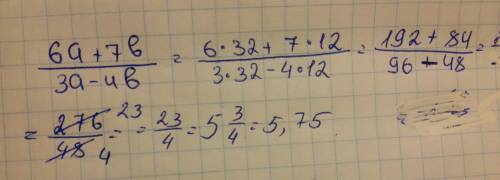 (6a + 7b)/(3a - 4b) = (6·32 + 7·12)/(3·32 - 4·12) = (192 + 84)/(96 - 48) =
= 276/48 = 23/4 = 23/4 = 5 3/4 = 5,75